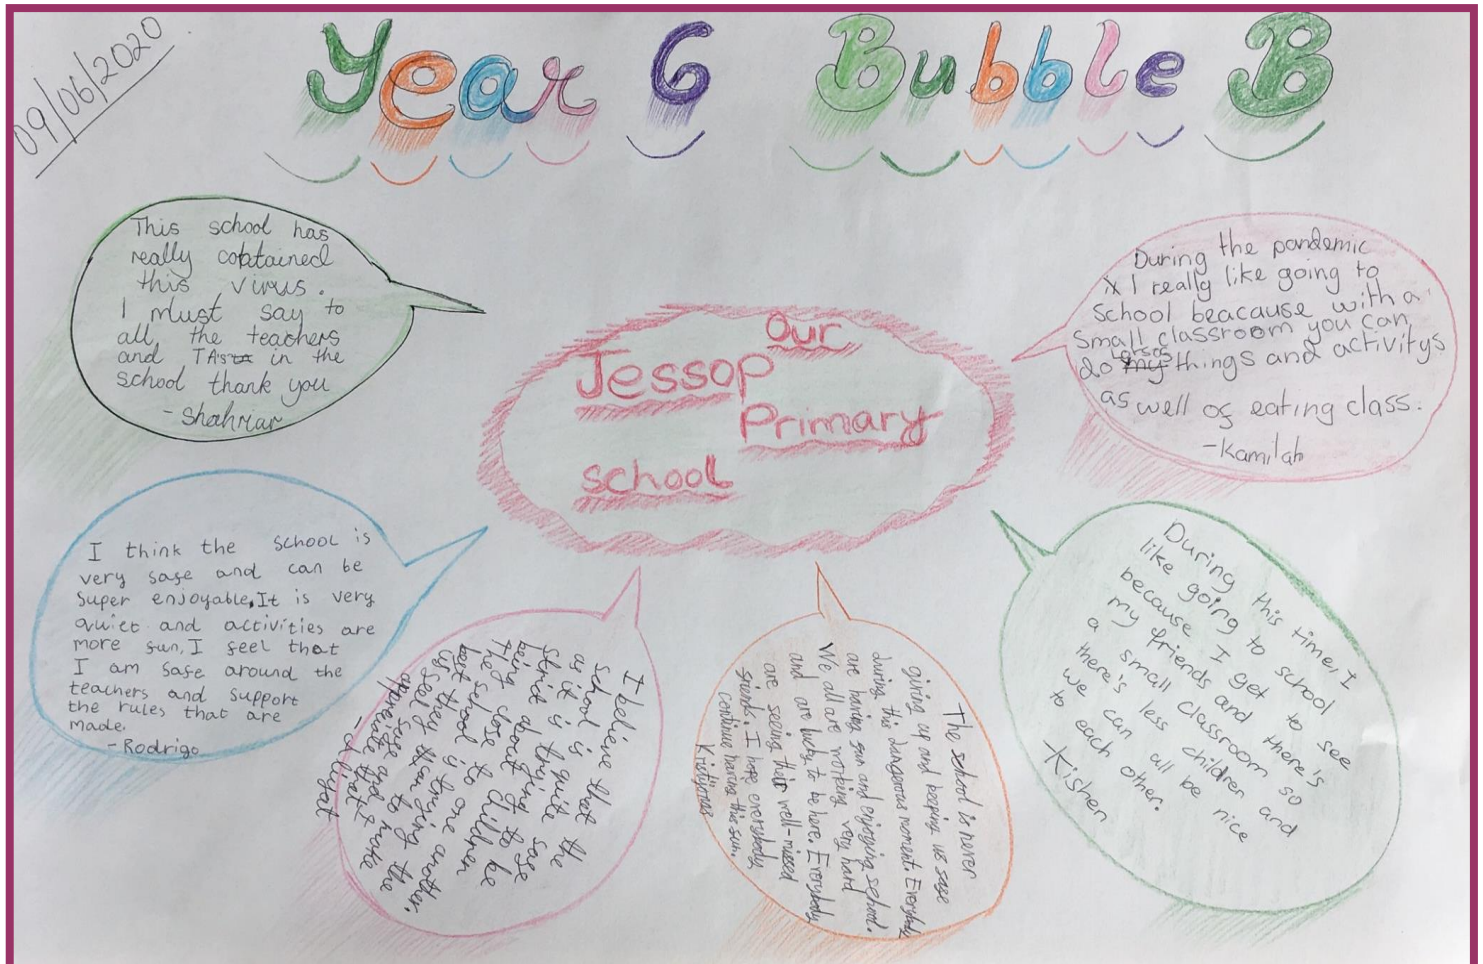 09/06/2020
Year 6 Bubble B
This school has
really contained
this virus.
I must say to
all the teachers
and TA's in the
school thank you
- Shahriar
Our
Jessop
Primary
school
During the pandemic
I really like going to
School beacause with a
Small classroom you can
do things and activitys
as well of eating class.
-Kamilah
I think the school is
very safe and can be
Super enjoyable. It is very
quiet and activities are
more fun. I feel that
I am safe around the
teachers and support
the rules that are
made.
- Rodrigo
I believe that the
school is quite safe
as it is trying
strict about children
being close to one another.
The school is trying the
best they can to make
us feel safe and I
appreciate that.
The school is never
giving up and keeping us safe
during this dangerous moment. Everybody
are having fun and enjoying school.
We all are working very hard
and are lucky to be here. Everybody
are seeing their well-missed
friends. I hope everybody
continue having this fun.
Kristijonas
During this time, I
like going to school
because I get to see
my friends and there's
a small classroom so
there's less children and
we can all be nice
to each other.
- Kishen